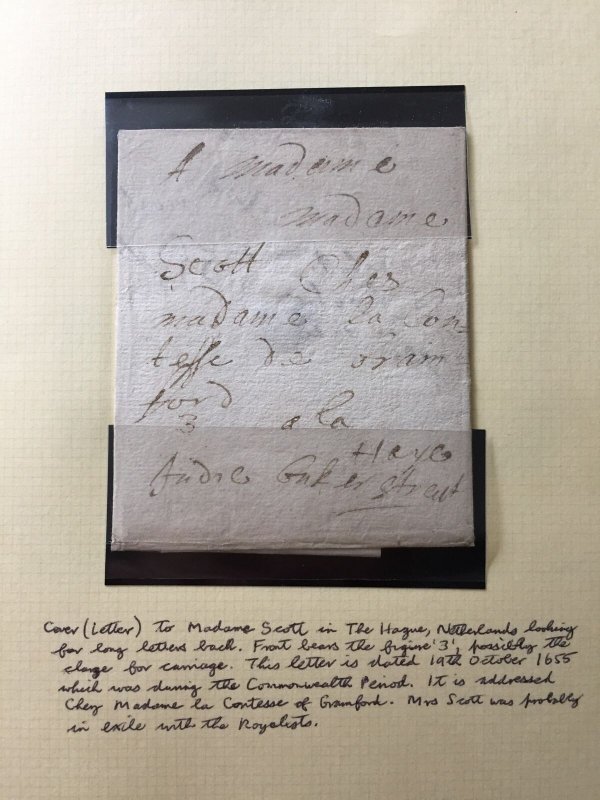 A madame
madame
Scott Ches
madame la Con=
tesse de
ford
3 a la
Haye
Andre street
Cover (Letter) to Madame Scott in The Hague, Netherlands looking
for long letters back. Front bears the figure '3', possibly the
charge for carriage. This letter is dated 19th October 1655
which was during the Commonwealth Period. It is addressed
Chez Madame la Contesse of Gramford. Mrs Scott was probably
in exile with the Royalists.